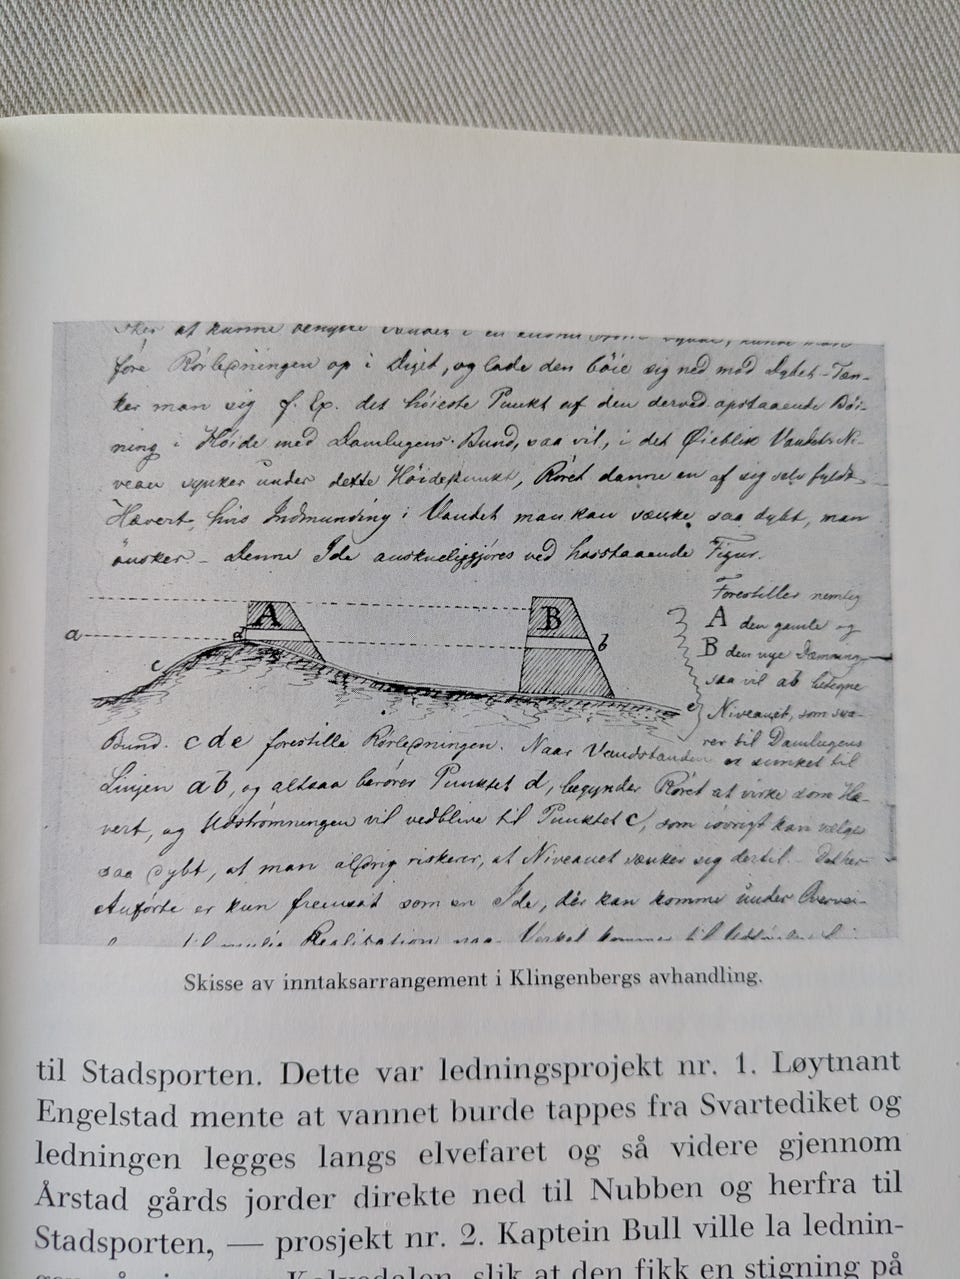 at kunne benytte Vandet i en
føre Rörledningen op i Diget, og lade den böie sig ned mod Dybet. Tæn-
ker man sig f. Ex. det höieste Punkt af den derved opstaaende Böi-
ning i Höide med Damlugens Bund, saa vil, i det Øieblik Vandets Ni-
veau synker under dette Höidepunkt, Röret danne en af sig selv fyldt
Hævert, hvis Indmunding i Vandet man kan sænke saa dybt, man
önsker. - Denne Ide anskueliggjöres ved hosstaaende Figur.
Forestiller nemlig
A den gamle og
B den nye Dæmning
saa vil ab betegne
Niveauet, som sva-
rer til Damlugens
A
B
a
d
b
c
e
Bund. cde forestille Rörledningen. Naar Vandstanden er sunket til
Linjen ab, og altsaa berörer Punktet d, begynder Röret at virke som Hæ-
vert, og Udströmningen vil vedblive til Punktet c, som iövrigt kan vælges
saa dybt, at man aldrig riskerer, at Niveauet sænker sig dertil. Det her
Anförte er kun fremsat som en Ide, der kan komme under Overvei-
til mulig Realisation naar Værket kommer til
Skisse av inntaksarrangement i Klingenbergs avhandling.
til Stadsporten. Dette var ledningsprojekt nr. 1. Løytnant
Engelstad mente at vannet burde tappes fra Svartediket og
ledningen legges langs elvefaret og så videre gjennom
Årstad gårds jorder direkte ned til Nubben og herfra til
Stadsporten, — prosjekt nr. 2. Kaptein Bull ville la lednin-
Kalvedalen, slik at den fikk en stigning på